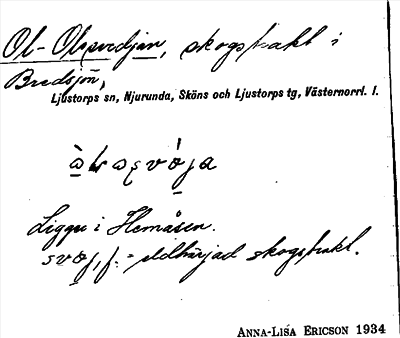 Ol-Olssvedjan, skogstrakt i
Bredsjön,
Ljustorps sn, Njurunda, Sköns och Ljustorps tg, Västernorrl. l.
Ligger i Hemåsen.
f. = eldhärjad skogstrakt.
ANNA-LISA ERICSON 1934